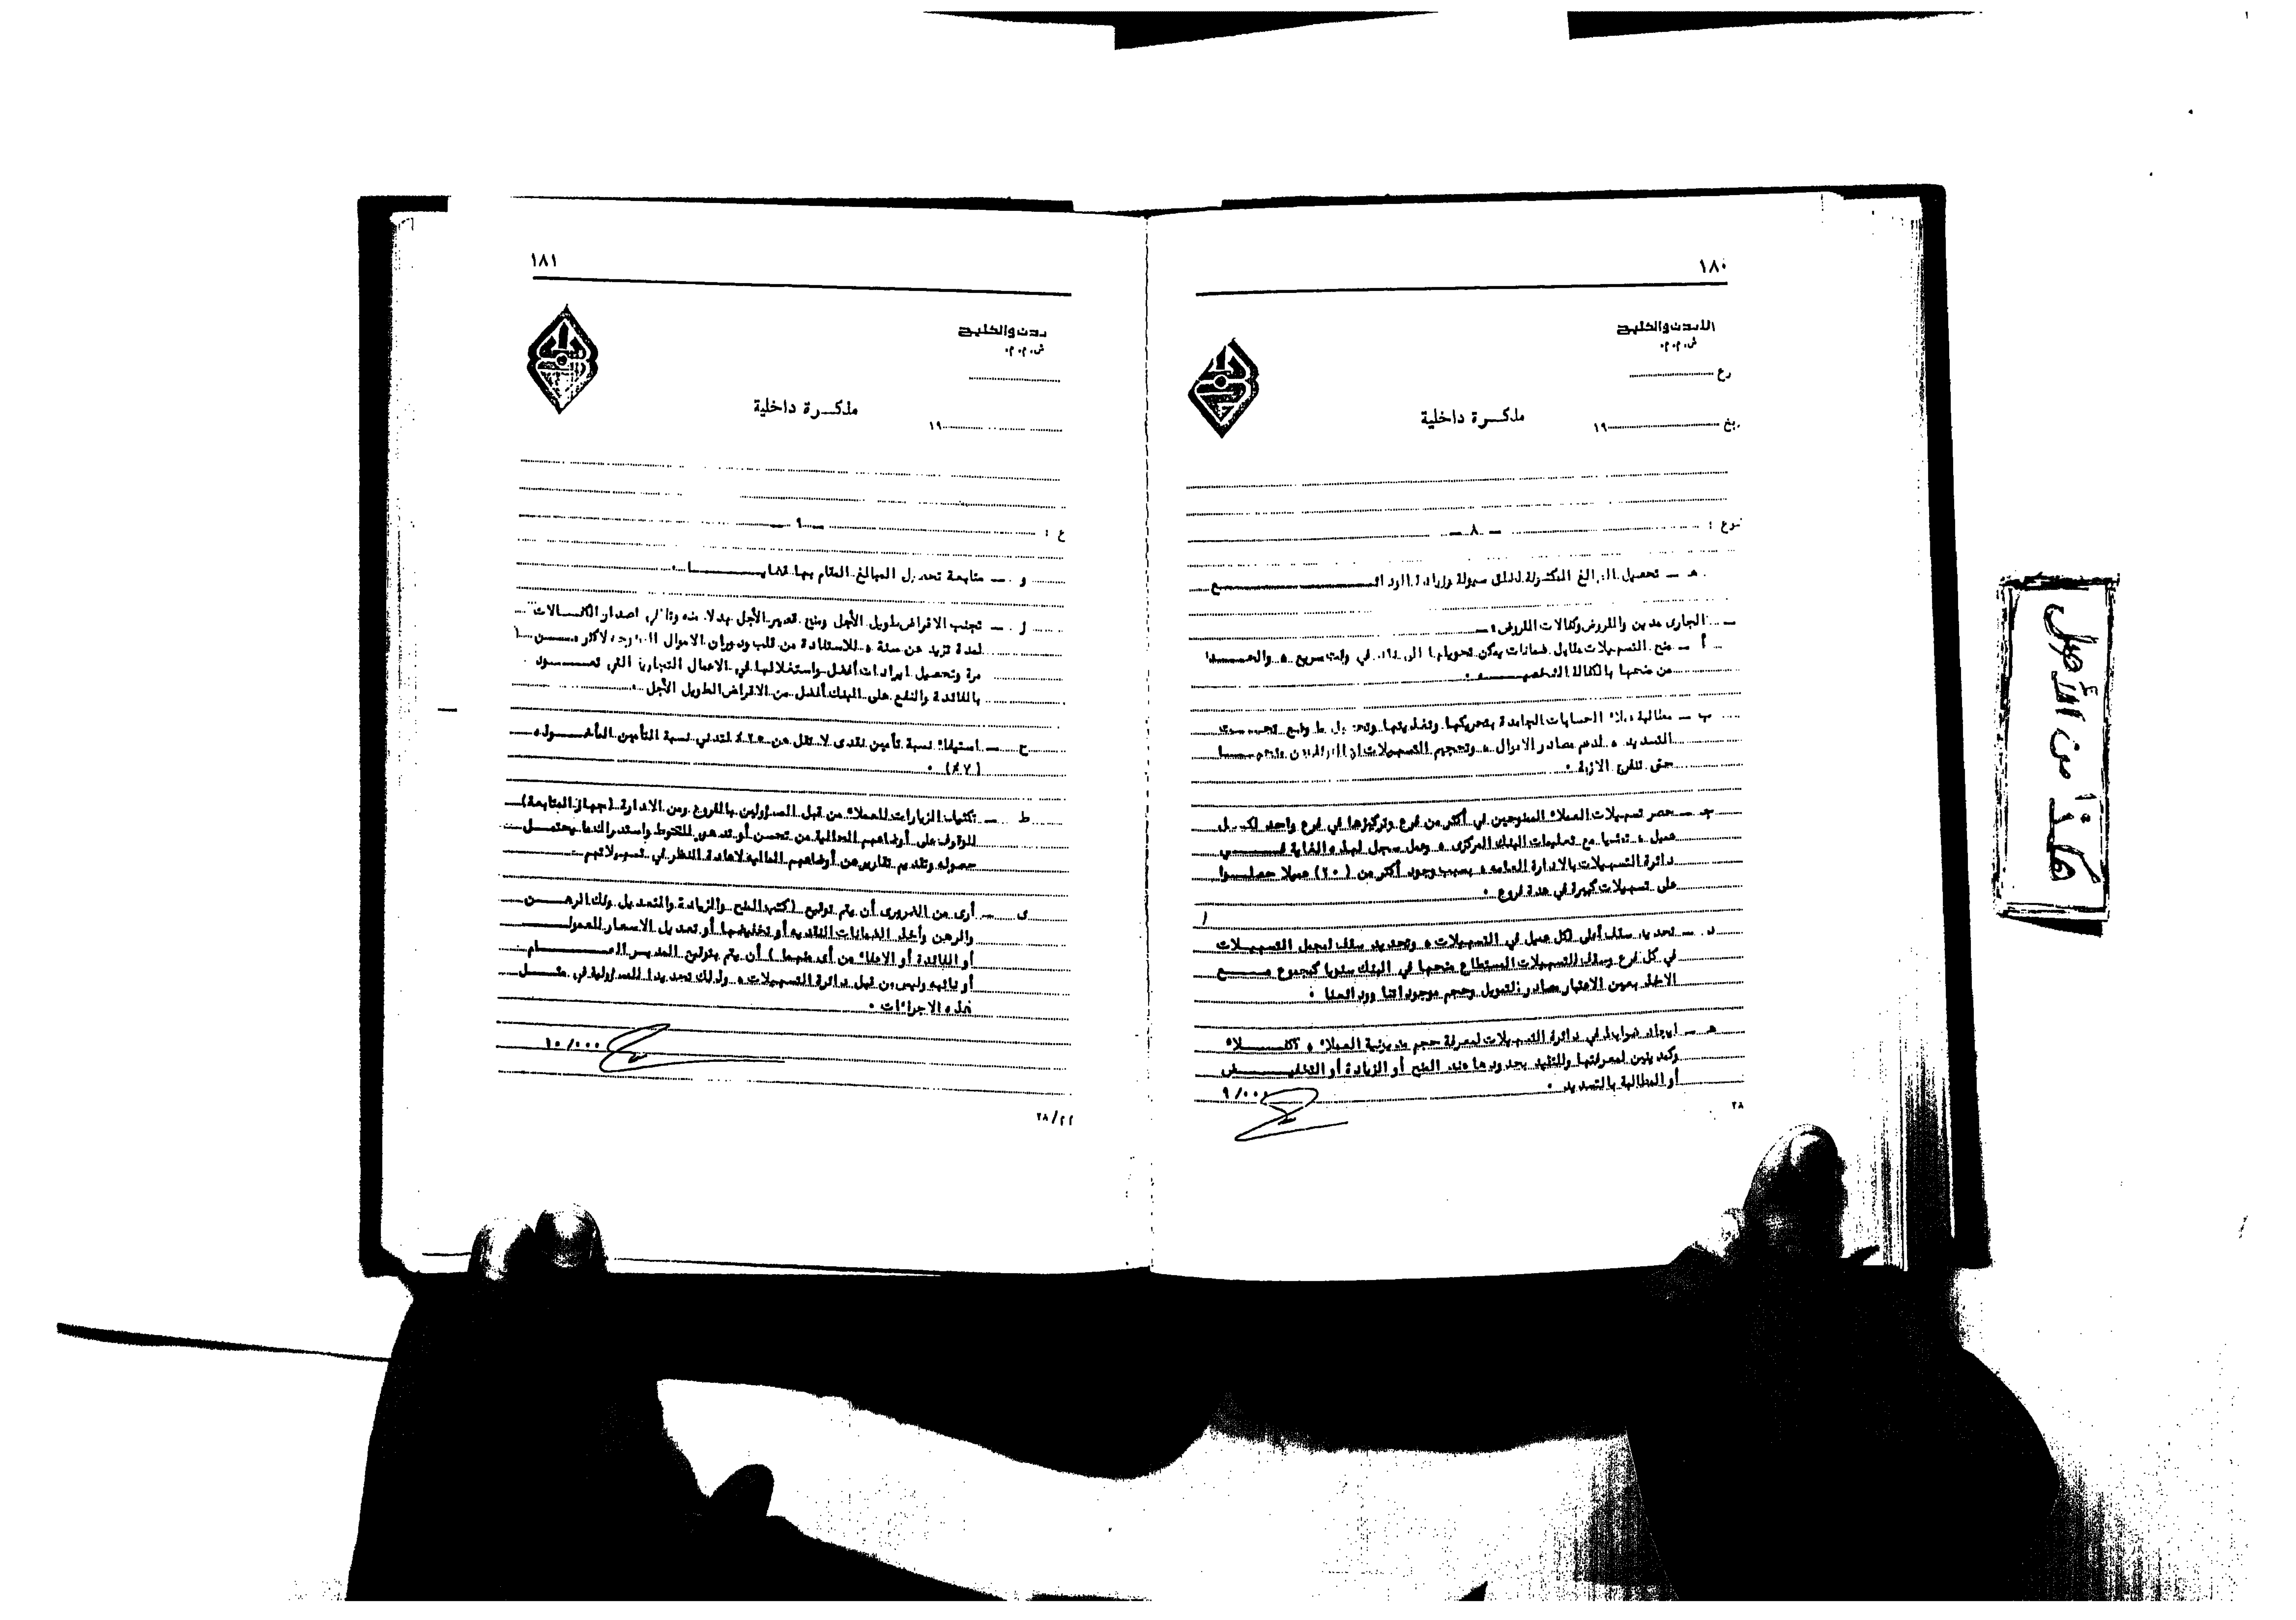 ١٨٠
الأردن والخليج
ش. م. م.
رع
مذكرة داخلية
ريخ ١٩
وع :
— ٨ —
هـ — تحصيل المبالغ المكشوفة لخلق سيولة وزيادة الودائع
— الجارى مدين والقروض وكفالات القروض :—
أ — منح التسهيلات مقابل ضمانات يمكن تحويلها الى في وقت سريع ، والحد
من منحها بالكفالة الشخصية .
ب — مطالبة عملاء الحسابات الجامدة بتحريكها وتغذيتها ما وقع تحت
التسديد ، لدعم مصادر الاموال ، وتحجيم التسهيلات
حتى تنفرج الازمة .
جـ — حصر تسهيلات العملاء الممنوحين في أكثر من فرع وتركيزها في فرع واحد لكل
عميل ، تمشيا مع تعليمات البنك المركزى ، وعمل سجل لهذه الغاية في
دائرة التسهيلات بالادارة العامة ، بسبب وجود أكثر من (٢٠) عميلا حصلوا
على تسهيلات كبيرة في عدة فروع .
د — تحديد سقف أعلى لكل عميل في التسهيلات ، وتحديد سقف لمجمل التسهيلات
في كل فرع وسقف للتسهيلات المستطاع منحها في البنك سنويا كمجموع مع
الاخذ بعين الاعتبار مصادر التمويل وحجم موجوداتنا وودائعنا .
هـ — ايجاد ضوابط في دائرة التسهيلات لمعرفة حجم مديونية العملاء ، ككفلاء
وكمدينين لمعرفتها وللتقيد بحدودها عند المنح أو الزيادة أو التخفيض
أو المطالبة بالتسديد .
٩/٠٠٠
٢٨
١٨١
ردن والخليج
ش. م. م.
مذكرة داخلية
١٩
ع :
— ٩ —
و — متابعة تحصيل المبالغ المقام بها قضايا .
ز — تجنب الاقراض طويل الأجل ومنح قصير الأجل بدلا منه اصدار الكفالات
لمدة تزيد عن سنة ، للاستفادة من تقلب ودوران الاموال لاكثر من
مرة وتحصيل ايرادات أفضل واستغلالها في الاعمال التجارية التي تعود
بالفائدة والنفع على البنك أفضل من الاقراض الطويل الأجل .
ح — استيفاء نسبة تأمين نقدى لا تقل عن ٢٥٪ لتدني نسبة التأمين المأخوذه
(٧٪) .
ط — تكثيف الزيارات للعملاء من قبل المسؤولين بالفروع ومن الادارة (جهاز المتابعة)
للوقوف على أوضاعهم الحالية من تحسن أو تدهور للتحوط واستدراك ما يحتمل
حصوله وتقديم تقارير عن أوضاعهم المالية لاعادة النظر في تسهيلاتهم
ى — أرى من الضرورى أن يتم توقيع (كتب المنح والزيادة والتعديل وفك الرهن
والرهن وأخذ الضمانات النقديه أو تخفيضها أو تعديل الاسعار للعموله
أو الفائدة أو الاعفاء من أى منهما) أن يتم بتوقيع المدير العام
أو نائبه وليس من قبل دائرة التسهيلات ، وذلك تحديدا للمسؤولية في مثل
هذه الاجراءات .
١٠/٠٠٠
٢٨/٢٢
هكذا من الأصل